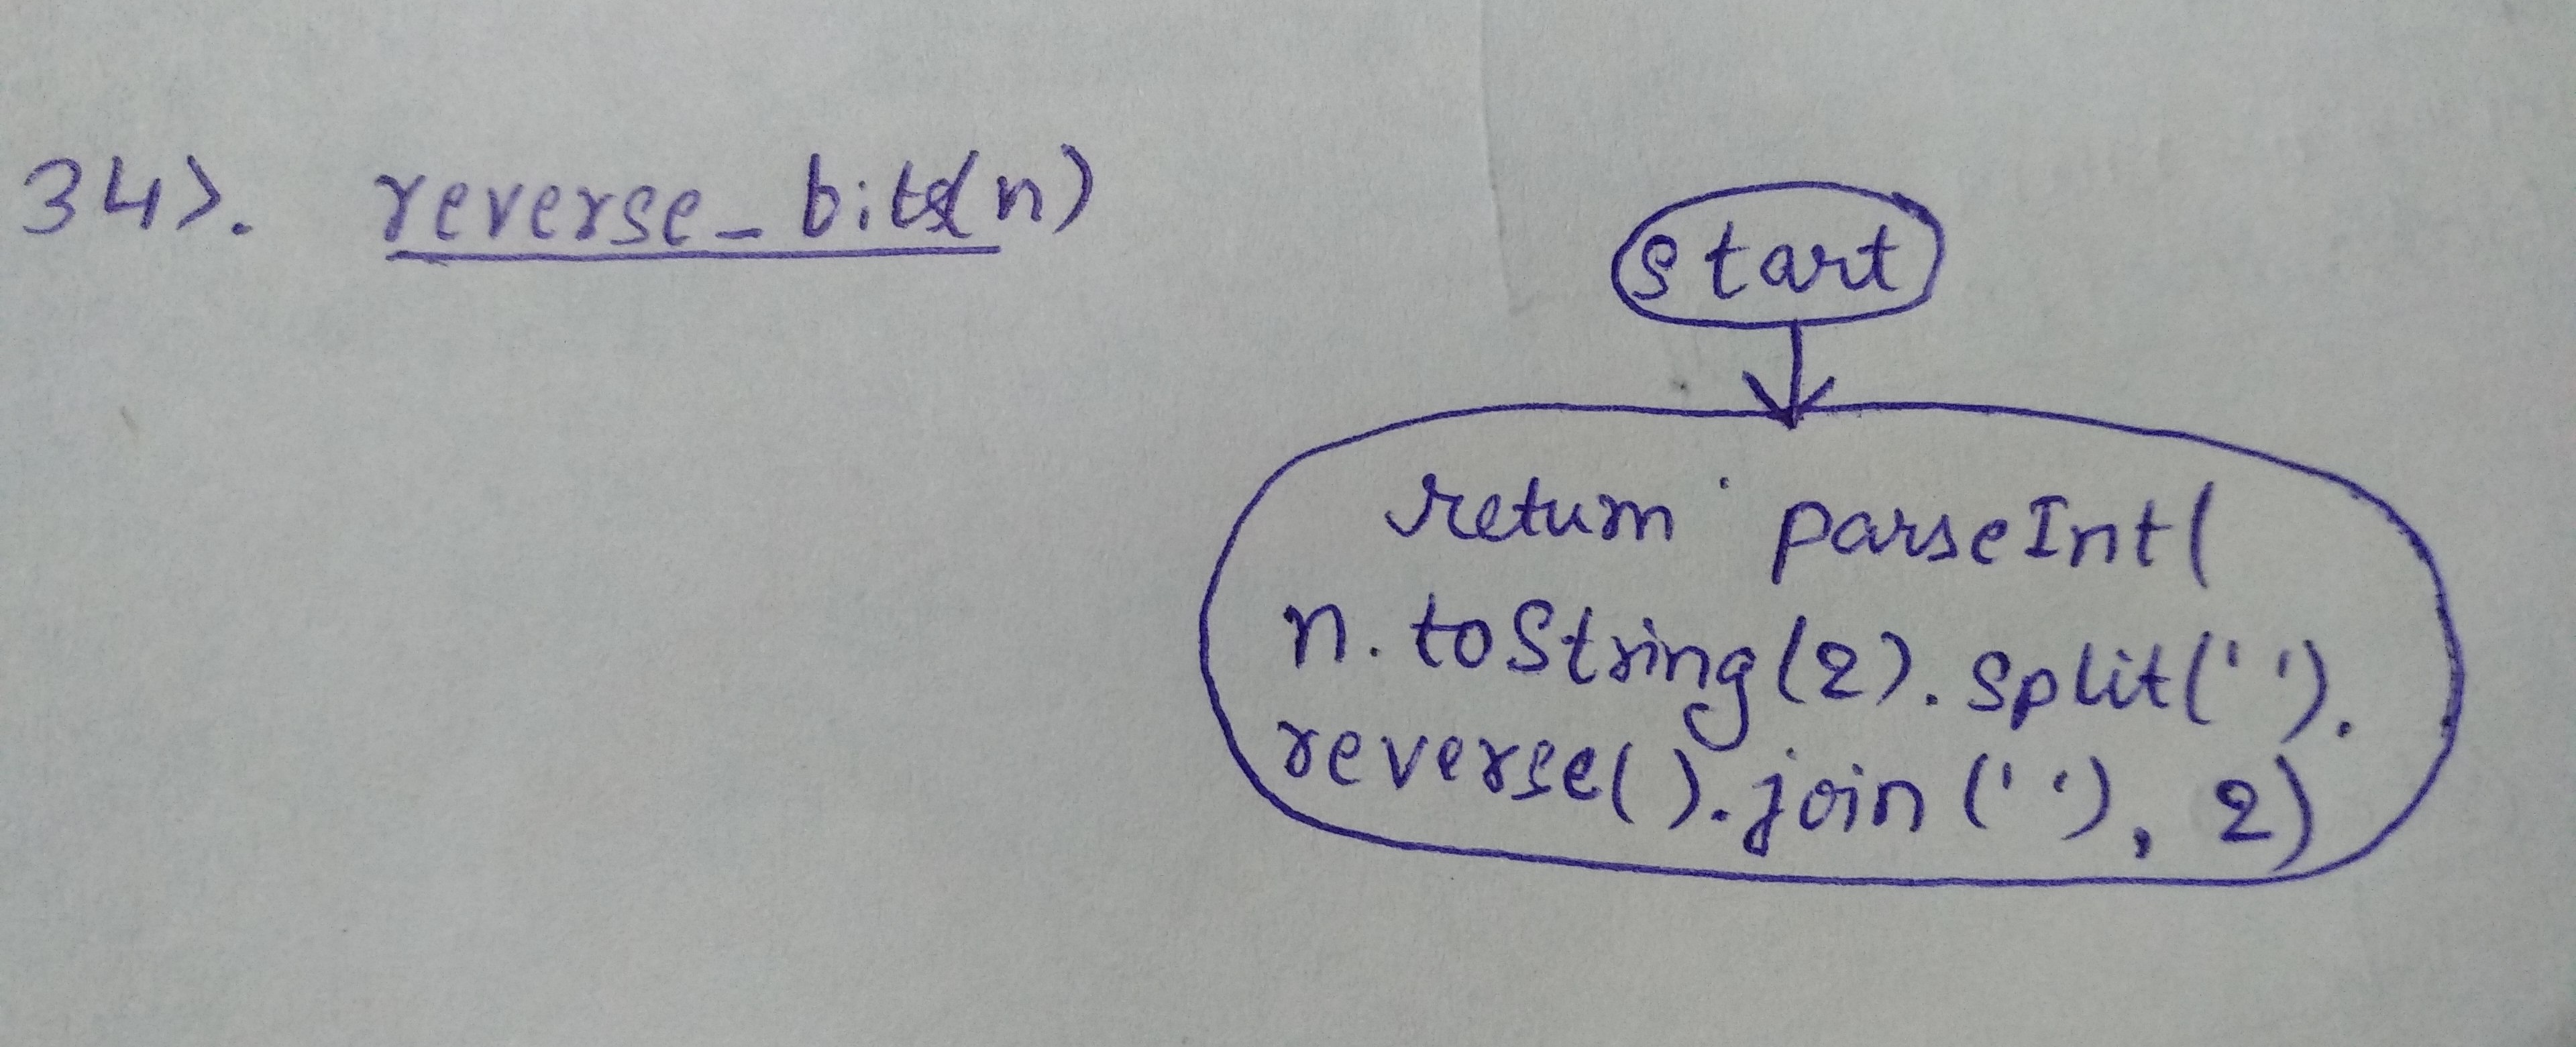 34). reverse_bits(n)
start
return parseInt(
n.toString(2).split('').
reverse().join(''), 2)